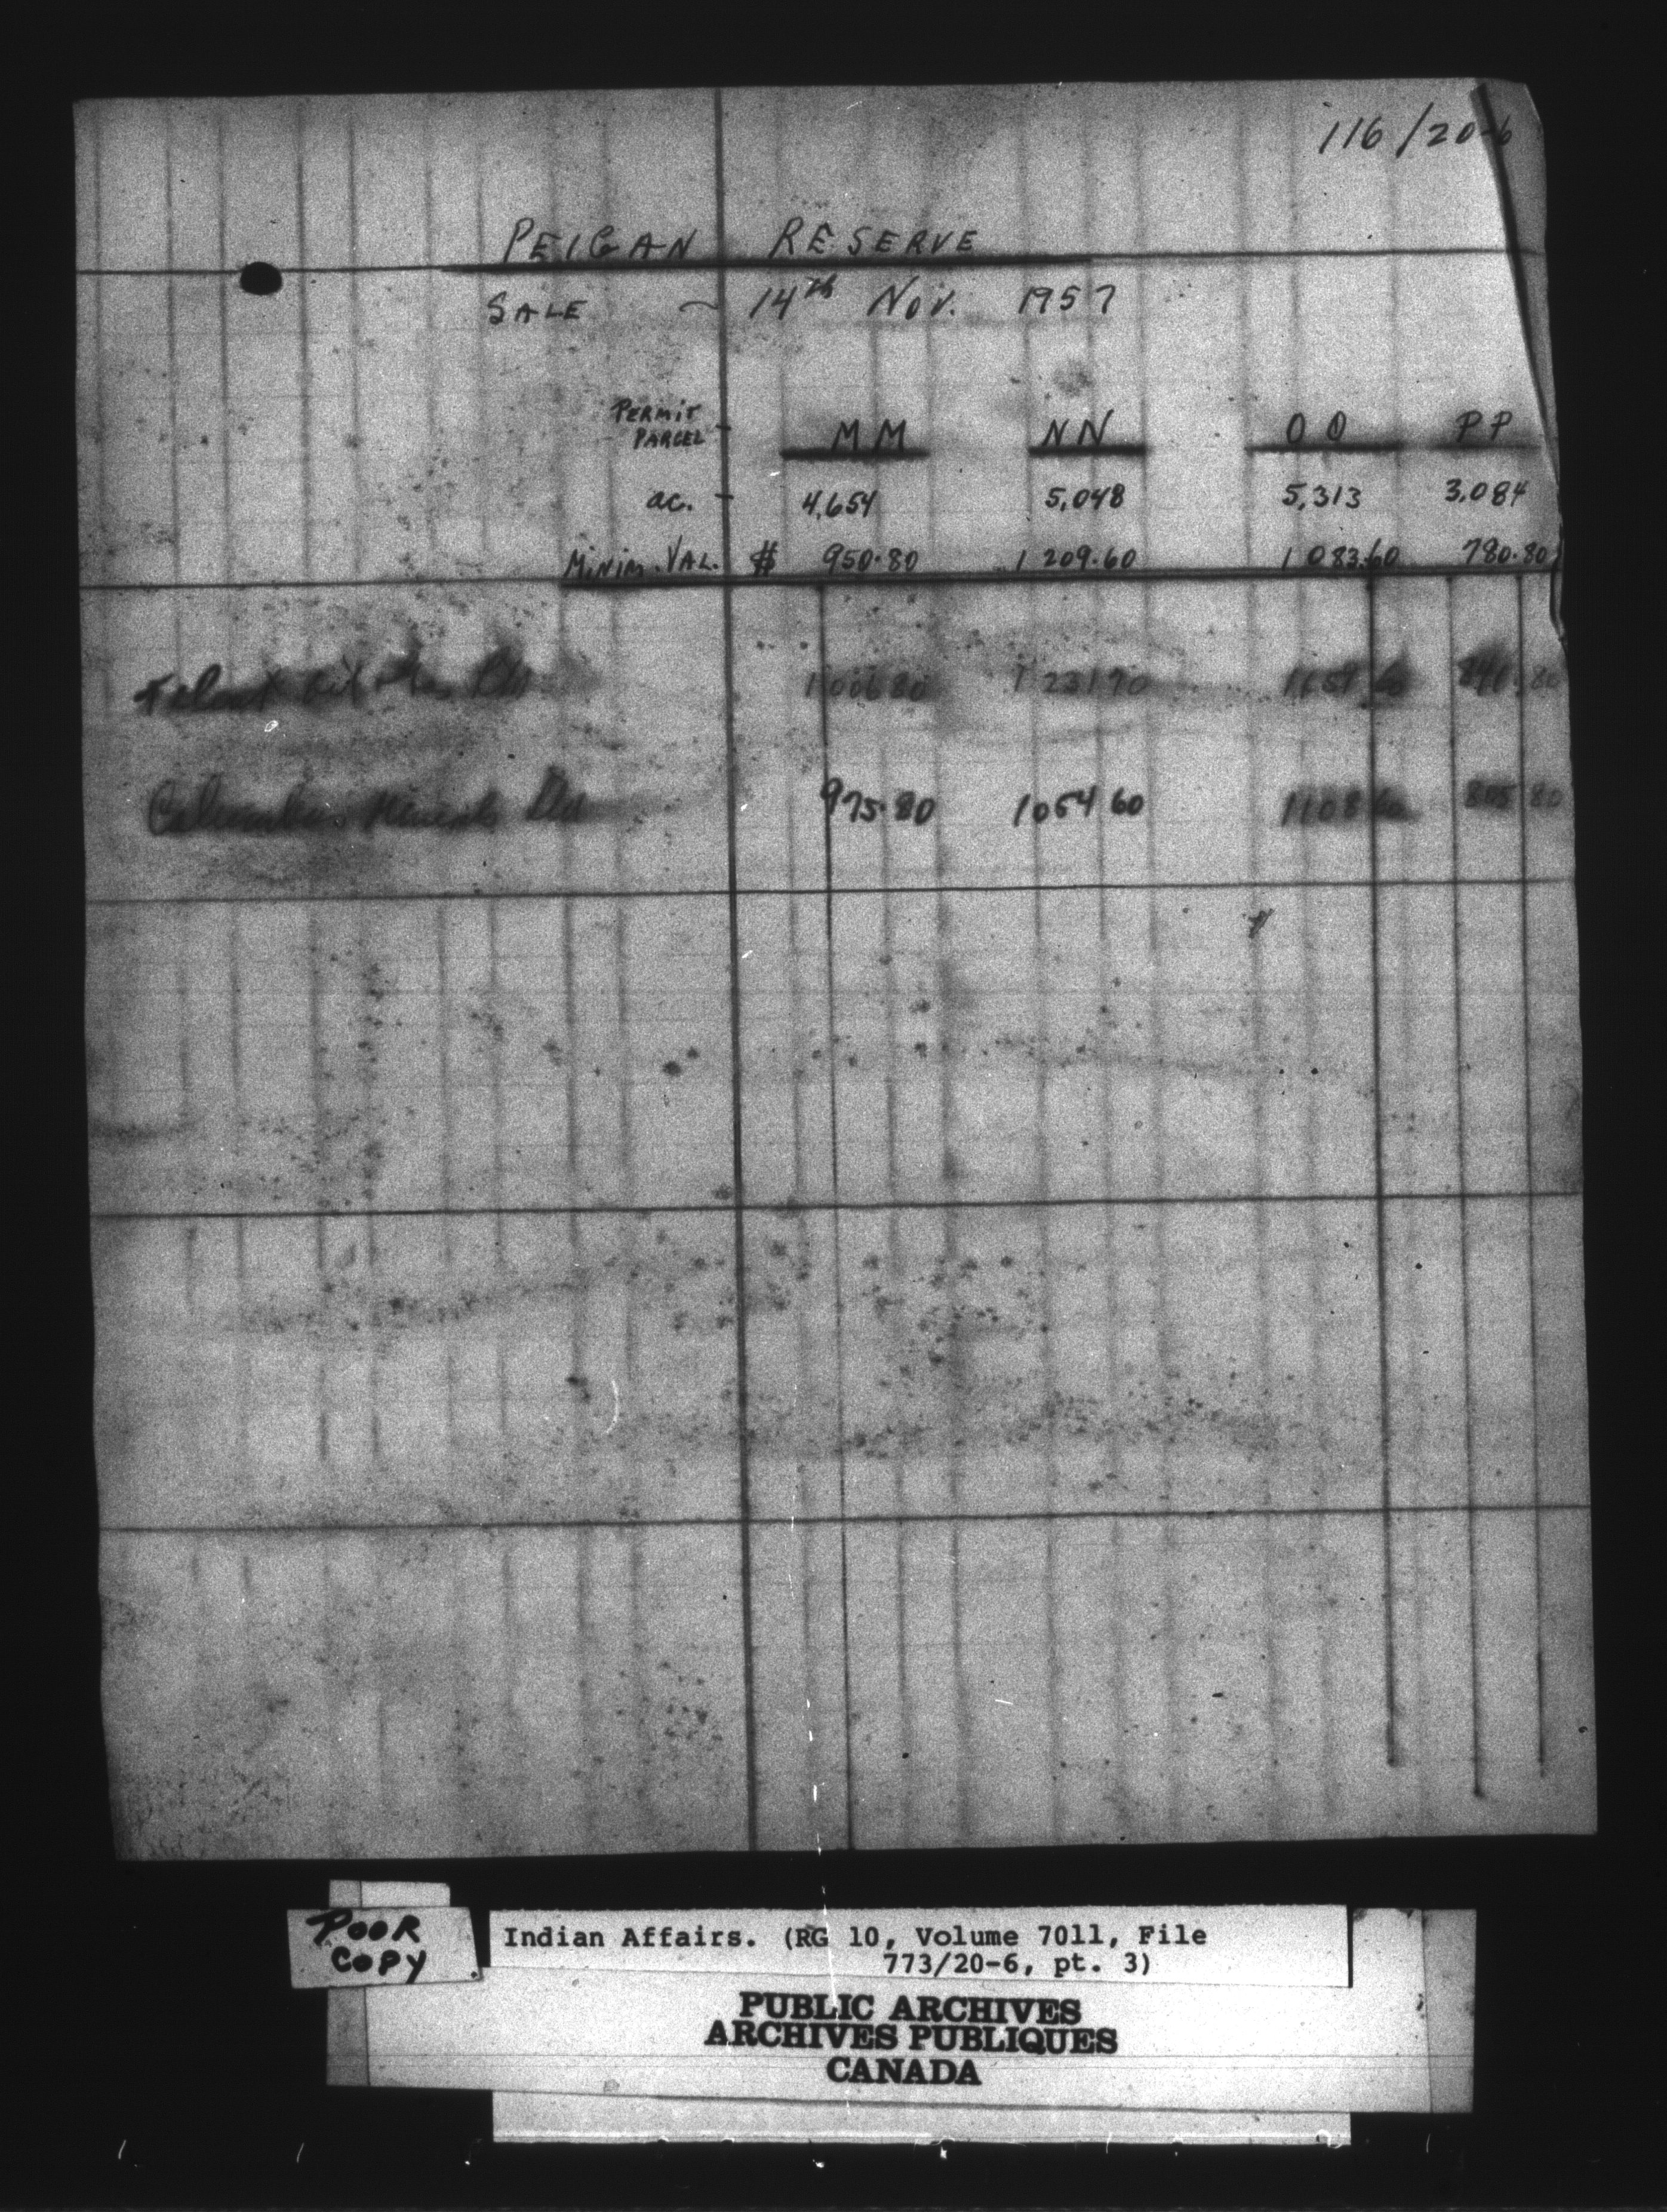 116/20-6
PEIGAN RESERVE
SALE – 14th Nov. 1957
PERMIT
PARCEL - MM NN OO PP
ac. - 4,654 5,048 5,313 3,084
MINIM. VAL. $ 950.80 1209.60 1083.60 780.80
Oil Ltd 1006 80 1231 70 80
Ltd 975.80 1054 60 1108 60 805 80
POOR
COPY
Indian Affairs. (RG 10, Volume 7011, File
773/20-6, pt. 3)
PUBLIC ARCHIVES
ARCHIVES PUBLIQUES
CANADA